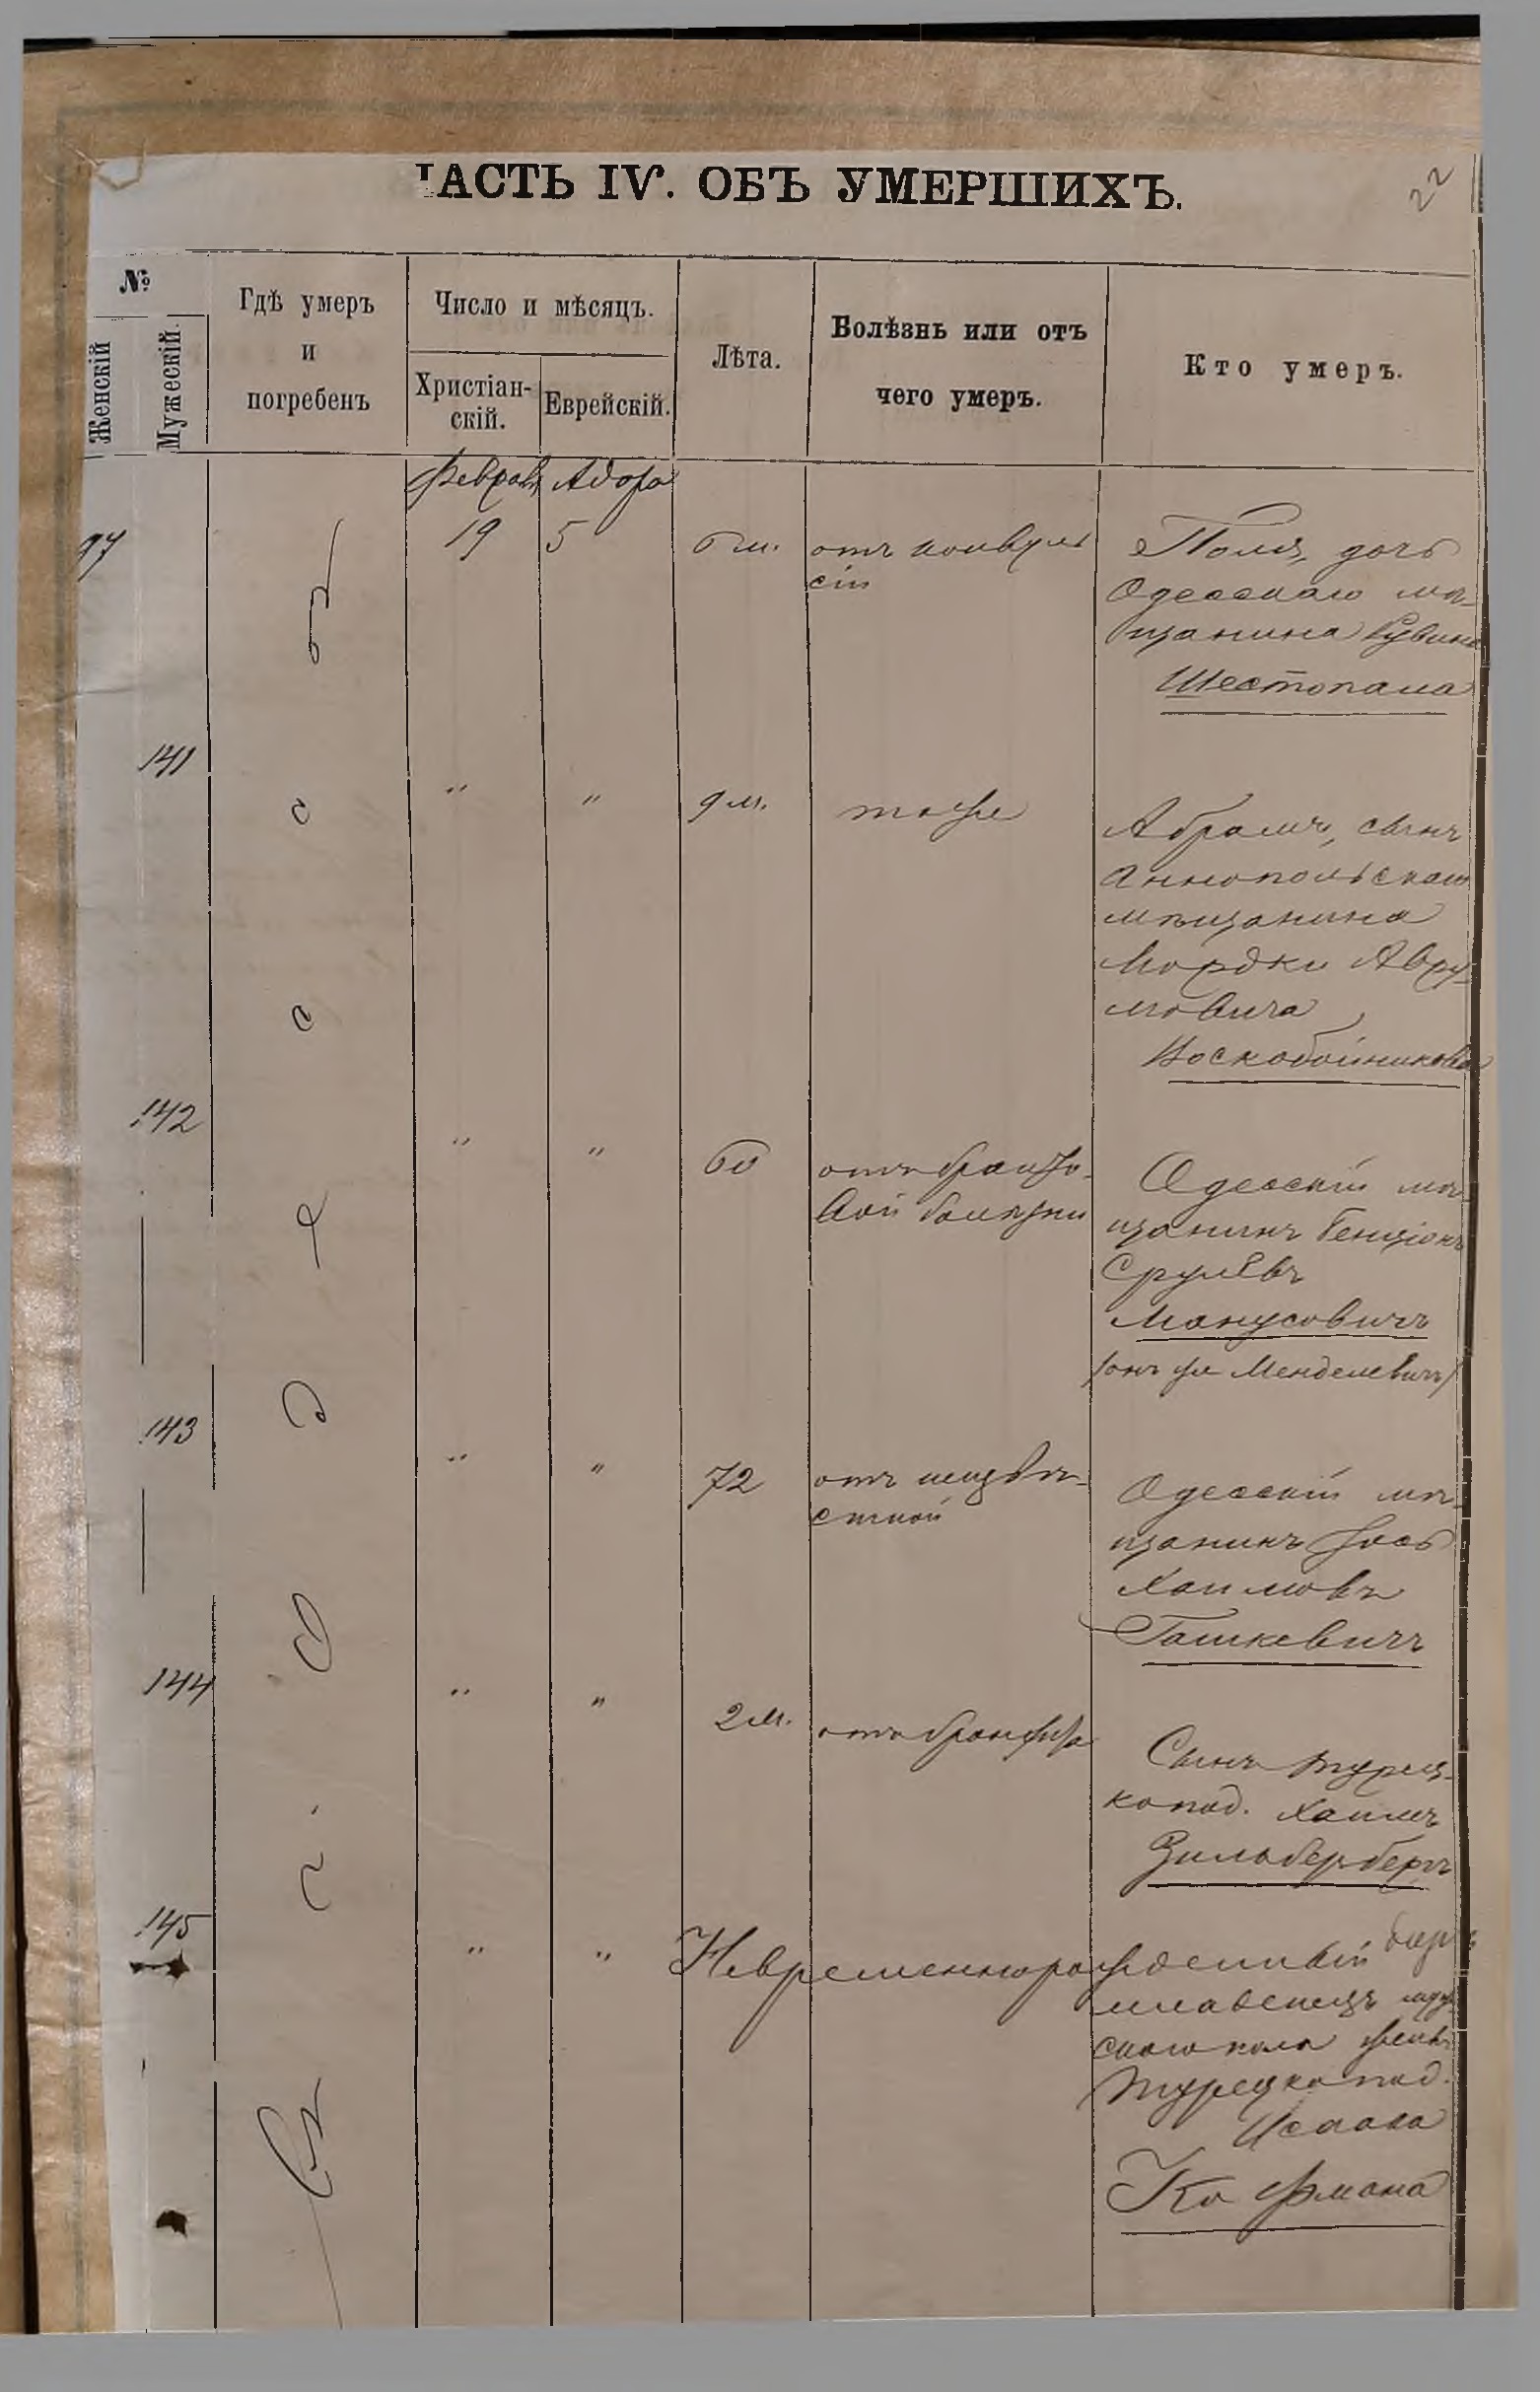 ЧАСТЬ IV. ОБЪ УМЕРШИХЪ.
22
№
Женскій
Мужескій.
Гдѣ умеръ
и
погребенъ
Число и мѣсяцъ.
Христіан-
скій.
Еврейскій.
Лѣта.
Болѣзнь или отъ
чего умеръ.
Кто умеръ.
Февраля Адора
97
19
5
6 м.
отъ конвуль
сіи
Поля, дочь
Одесскаго мѣ-
щанина Рувина
Шестопала
141
"
"
9 м.
тоже
Абрамъ, сынъ
Аннопольскаго
мѣщанина
Мордки Авру-
мовича
Воскобойникова
142
"
"
60
отъ брайто-
вой болѣзни
Одесскій мѣ-
щанинъ Бенціонъ
Срулевъ
Манусовичъ
/онъ же Менделевичъ/
143
"
"
72
отъ неизвѣ-
стной
Одесскій мѣ-
щанинъ Іось
Хаимовъ
Ташкевичъ
144
"
"
2 м.
отъ бронхита
Сынъ турец-
копод. Хаимъ
Зильбербергъ
145
"
"
Невременнорожденный
младенецъ муже-
скаго пола
турецкопод.
Исаака
Кофмана
о
д
е
с
с
ѣ